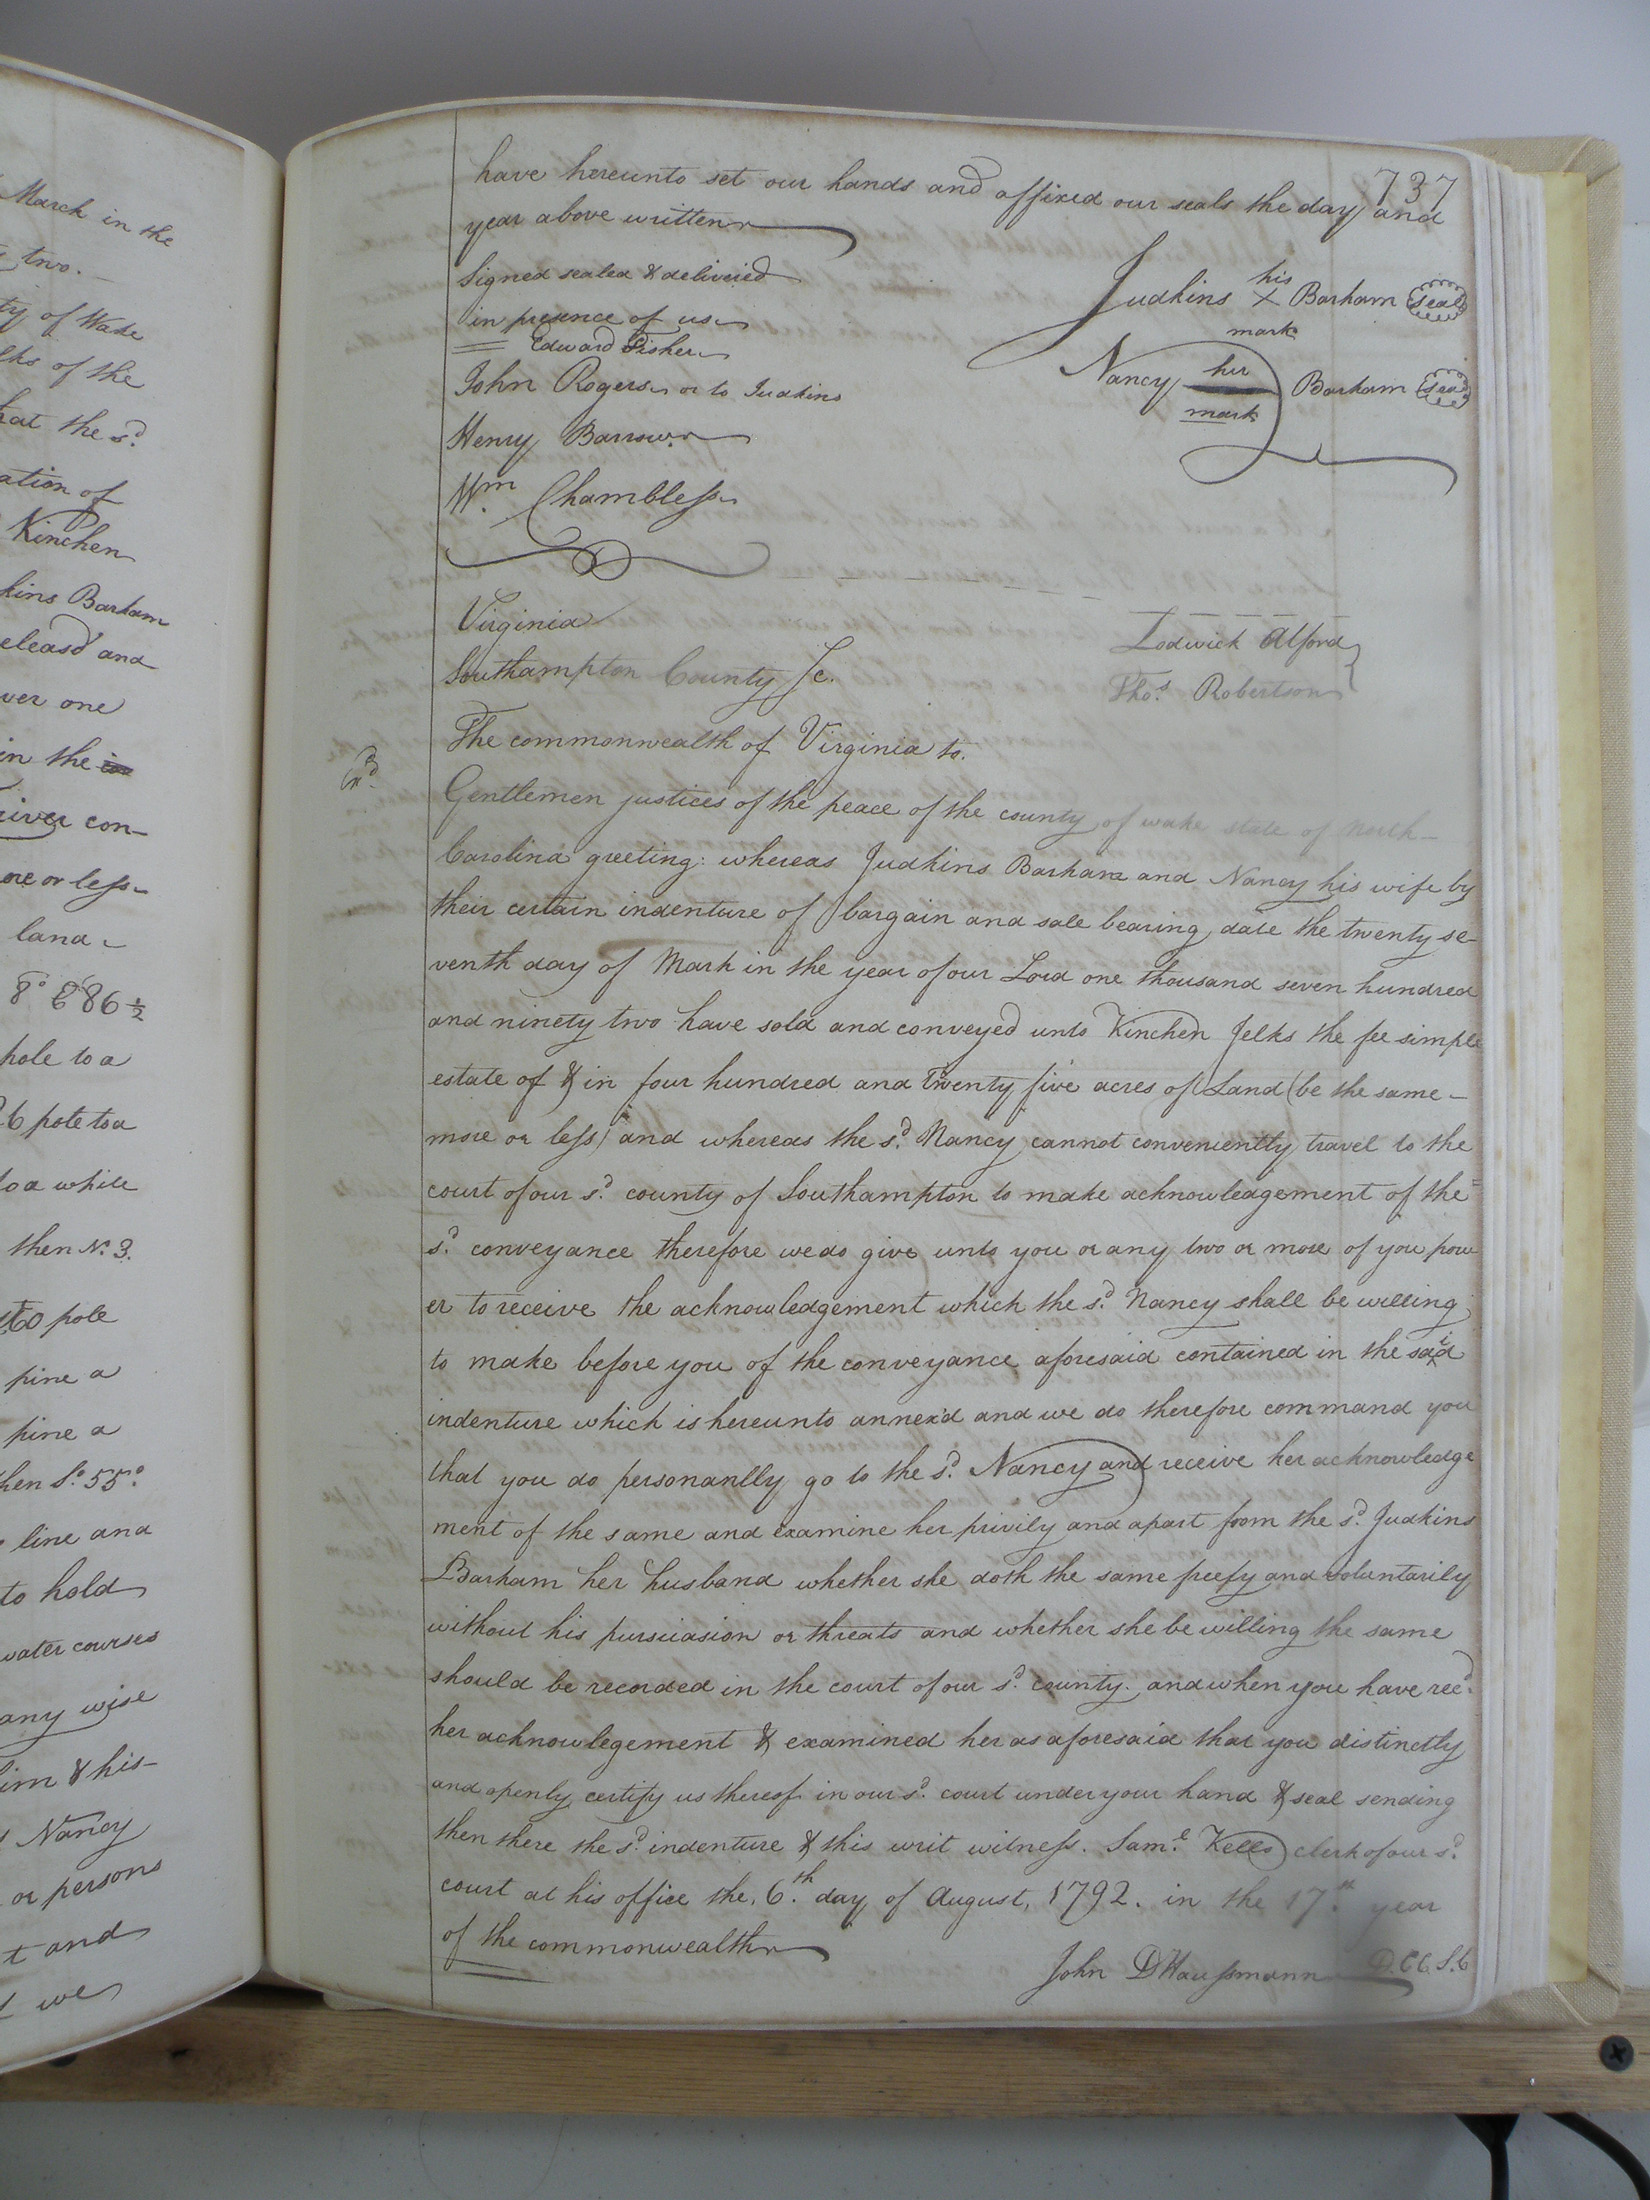 March in the
two.
ty of Wake
lks of the
hat the sd.
ation of
Kinchen
kins Barham
eleasd and
ver one
in the
river con-
ore or less
land
8° E 86 ½
pole to a
26 pole to a
to a white
then No. 3.
160 pole
pine a
pine a
then So. 55°
line and
to hold
water courses
any wise
him & his
Nancy
or persons
t and
we
737
have hereunto set our hands and affixed our seals the day and
year above written
Signed sealed & delivered
in presence of us
Edward Fisher
John Rogers or to Judkins
Henry Barrow
Wm. Chambless
Judkins his X mark Barham seal
Nancy her mark Barham seal
Virginia
Southampton County Sc.
Lodwick Alford
Thos. Robertson
The commonwealth of Virginia to.
Gentlemen justices of the peace of the county of wake state of North
Carolina greeting: whereas Judkins Barham and Nancy his wife by
their certain indenture of bargain and sale bearing date the twenty se-
venth day of March in the year of our Lord one thousand seven hundred
and ninety two have sold and conveyed unto Kinchen Jelks the fee simple
estate of & in four hundred and twenty five acres of Land (be the same
more or less) and whereas the sd. Nancy cannot conveniently travel to the
court of our sd. county of Southampton to make acknowleagement of the
sd. conveyance therefore we do give unto you or any two or more of you pow
er to receive the acknowledgement which the sd. Nancy shall be willing
to make before you of the conveyance aforesaid contained in the said
indenture which is hereunto annex'd and we do therefore command you
that you do personanlly go to the sd. Nancy and receive her acknowledge
ment of the same and examine her privily and apart from the sd. Judkins
Barham her husband whether she doth the same freely and voluntarily
without his pursuasion or threats and whether she be willing the same
should be recorded in the court of our sd. county. and when you have recd.
her acknowlegement & examined her as aforesaid that you distinctly
and openly certify us thereof in our sd. court under your hand & seal sending
then there the sd. indenture & this writ witness. Saml. Kello clerk of our sd.
court at his office the, 6.th day of August, 1792. in the 17th. year
of the commonwealth
John D Haussmann D.C.C.S.C